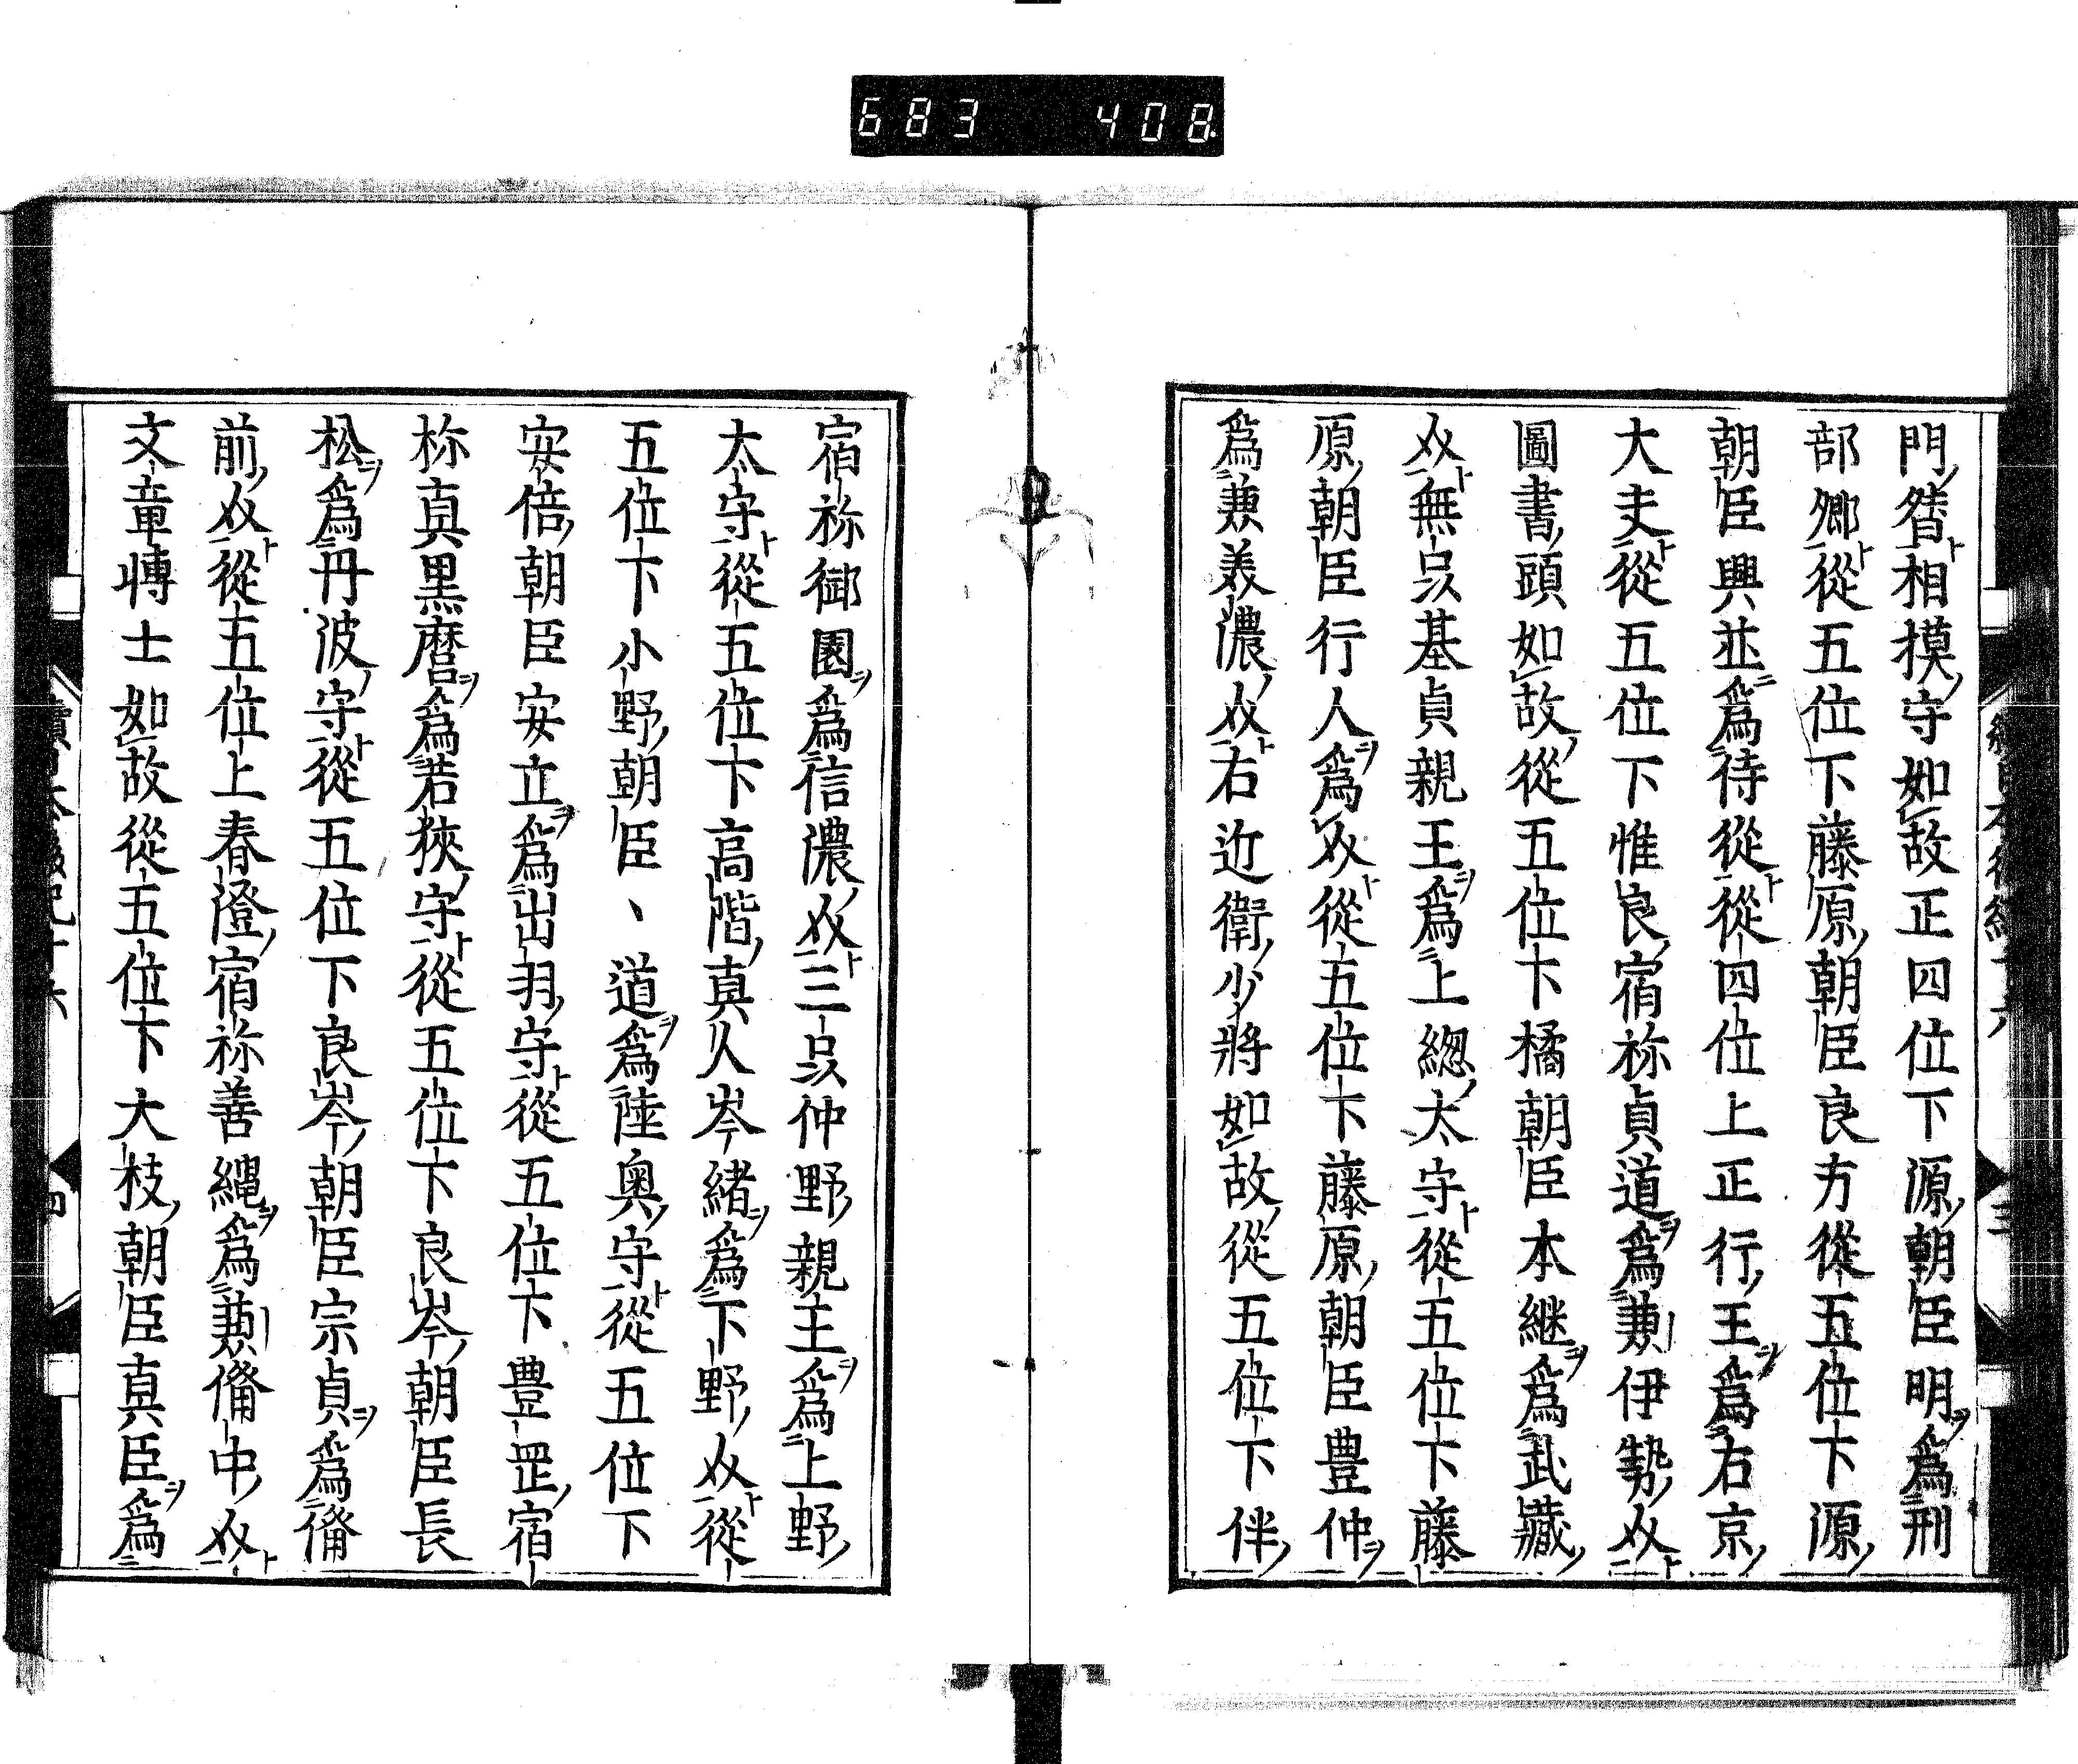 683 408
三
門督相摸守如故正四位下源朝臣明爲刑
部卿從五位下藤原朝臣良方從五位下源
朝臣興並爲侍從從四位上正行王爲右京
大夫從五位下惟良宿祢貞道爲兼伊勢介
圖書頭如故從五位下橘朝臣本継爲武藏
介無品基貞親王爲上総太守從五位下藤
原朝臣行人爲介從五位下藤原朝臣豊仲
爲兼美濃介右近衛少將如故從五位下伴
宿祢御園爲信濃介三品仲野親王爲上野
太守從五位下高階真人岑緒爲下野介從
五位下小野朝臣、道爲陸奥守從五位下
安倍朝臣安立爲出羽守從五位下豊罡宿
祢真黒麿爲若狹守從五位下良岑朝臣長
松爲丹波守從五位下良岑朝臣宗貞爲備
前介從五位上春澄宿祢善縄爲兼備中介
文章博士如故從五位下大枝朝臣真臣爲